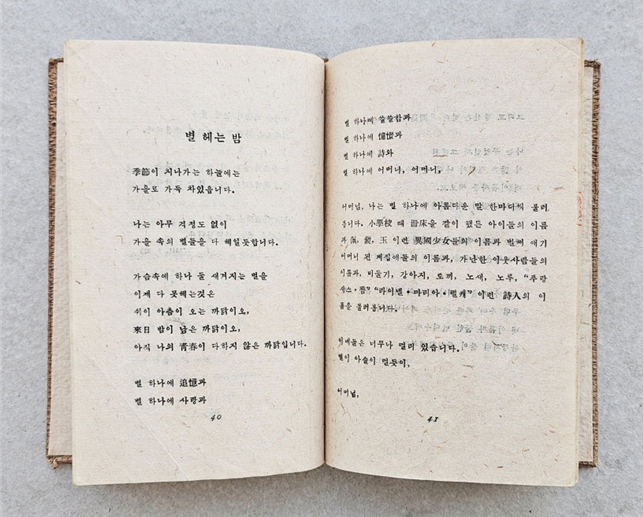 별 헤는 밤
季節이 지나가는 하늘에는
가을로 가득 차있읍니다.
나는 아무 걱정도 없이
가을 속의 별들을 다 헤일듯합니다.
가슴속에 하나 둘 새겨지는 별을
이제 다 못헤는것은
쉬이 아츰이 오는 까닭이오,
來日 밤이 남은 까닭이오,
아직 나의 青春이 다하지 않은 까닭입니다.
별 하나에 追憶과
별 하나에 사랑과
40
별 하나에 쓸쓸함과
별 하나에 憧憬과
별 하나에 詩와
별 하나에 어머니, 어머니,
어머님, 나는 별 하나에 아름다운 말 한마디씩 불러
봅니다. 小學校 때 冊床을 같이 했든 아이들의 이름
과 佩, 鏡, 玉 이런 異國少女들의 이름과 벌써 애기
어머니 된 계집애들의 이름과, 가난한 이웃사람들의
이름과, 비둘기, 강아지, 토끼, 노새, 노루, “푸랑
시스・짬” “라이넬・마리아・릴케” 이런 詩人의 이
름을 불러봅니다.
이네들은 너무나 멀리 있습니다.
별이 아슬이 멀듯이,
어머님,
41